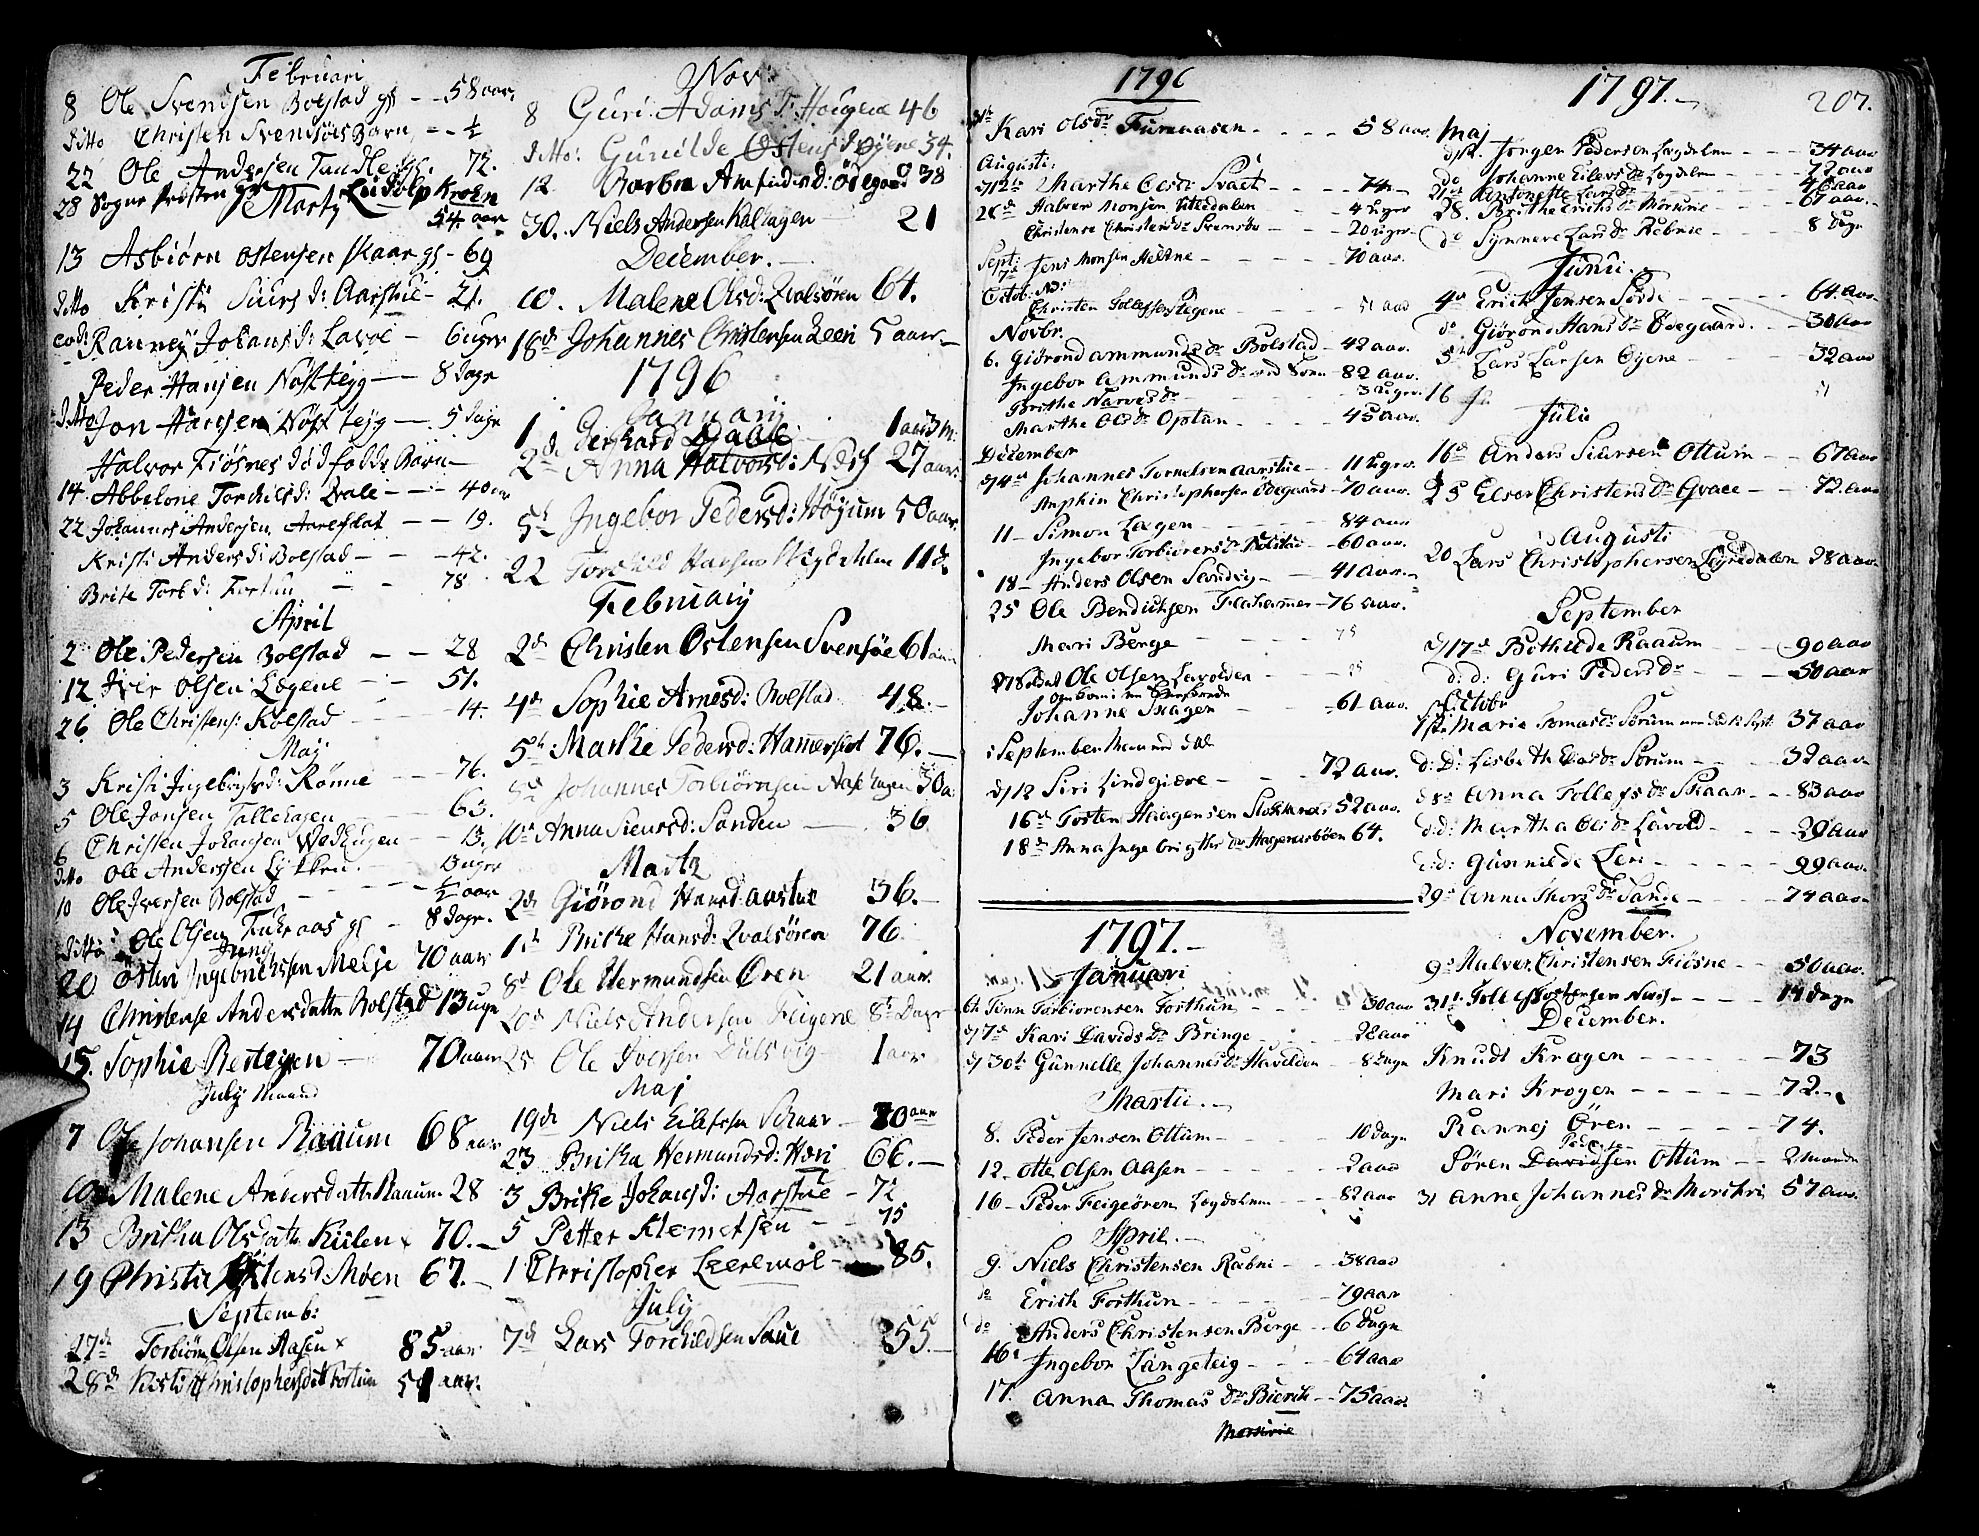 Februari
8 Ole Svendsen Bolstad gf - - 58 aar.
ditto Christen Svendsøns Barn - - ½
22 Ole Andersen Tandle gf. - 72.
28 Sogne Præsten Hr Ludolp Krohn
Marty 54 aar
13 Asbiørn Ostensen skaar gf - 69
ditto Kristi Siurs d: Aarstue - 21.
eod: Ranney Johans d: Lavoe - 6 uger
Peder Hansen Nøsstegg - 8 dage
ditto Jon Hansen Nøsstegg - 5 dage
Halvor Fiøsnes dødfødde Barn -
14. Abbelone Torchilsd: Qvale - - - 40 aar
22 Johannes Andersen Aarefslot - - 19.
Kristi Andersd: Bolstad - - - 42.
Brite Torbd: Fortun - - 78.
April
2 Ole Pedersen Bolstad - - 28
12 Iver Olsen Løgene - - - 51.
26 Ole Christens: Kolstad - - - 14.
Maj
3 Kristi Ingebrigtsd: Rønne - - - 76.
5 Ole Jonsen Tallehagen - - - 63.
6 Christen Johansen Wedhugen - 13.
ditto Ole Anderssen Lykkren. 13 uger
10 Ole Iversen Bolstad - - - ½ aar
Ditto Ole Olsen Fuhraas gf - 8 dage.
Juny
20 Østen Ingebrichtsen Melse 70 aar
14 Christense Andersdatter Bolstad 13 uger
15. Sophie Resteigen - 70 aar
July Maaned
7 Ole Johansen Raaum 68 aar
10 Malene Andersdattr Raaum 28
13 Britha Olsdattr Kiilen 70. -
19 Christie Østensd Moen 67. -
Septemb:
27de Torbiørn Olsen Aasen 85 aar
28de Kirsti Christophersdtr Fortun 51 aar.
Nov:
8 Guri Adams d: Haugene 46
ditto: Gunilde Østensd Øyene 34.
12. Barbra Amundsd: Ødegord 38
30. Niels Andersen Kalhagen - 21
December. -
10. Malene Olsd: Qvalsøren 64.
18de Johannes Christensen Leeri 5 aar -
1796
January
1 Gerhard Daale - 1 aar 3 m.
2de Anna Halvorsd: Næss 27 aar.
5t Ingebor Pedersd: Høyum 50 aar.
22 Torchild Hansen Øygedalen 11 d.
February
2de Christen Ostensen Svensøe 61 aar
4de Sophie Arnesd: Bolstad 48. -
5te Marthe Pedersd: Hamerslot 76. -
8de Johannes Torbiørnsen Aasehagen 30 a.
10de Anna Siursd: Sanden - 36
Marty
2de Giørond Hansd: Aarstue 36. -
1te Brithe Hansd: Qvalsøren 76
8d Ole Hermundsen Øren 21 aar.
20de Niels Andersen Feigene 8te Dage
25 Ole Iversen Dulsvig 1 aar
Maj
19de Niels Eilefsen Schaar - 80 aar
23 Britha Hermundsd: Høri 66. -
3 Brithe Johansd: Aarstue - 72
5 Petter Klemetsen - - 75
1 Christopher Leeremol - 85.
July
7de Lars Torchildsen Saue 55. -
1796
Kari Olsdr Furuaasen - - - - 58 aar.
Augusti:
d/12te Marthe Olsdr Svaet - - - 74 -
26de Halvor Monsen Vetledalen - - - 4 Uger
Christense Christensdr Svensøe - - - 20 uger
Sept:
7de Jens Monsen Heltne - - - 70 aar.
Octob:
Christen Tollefsen Øygene - 51 aar
Novbr.
6. Giørond Ammundsdr Bolstad - 42 aar.
Ingebor Ammundsdr - 82 aar.
Brithe Narvesdr - - - 3 Uger.
Marthe Olsdr Optan - - - 45 aar.
December
d/4de Johannes Tornelsen Aarstue - - 11 Uger.
Anphin Christophersen Ødegaard - 70 aar.
11 - Simon Løgen - - - - - 84 aar
Ingebor Torbiorensdr Bolstad - 60 aar.
18 - Anders Olsen Sandvig - - 41 aar.
25 Ole Bendichsen Flahammer - 76 aar.
Mari Berge - - - 75
Ole Olsen Lavolden - - 25
Johanne Skagen - - 61 aar.
i September Maaned død
d/12 Siri Lindgiære - - - 72 aar.
16de Tosten Haagensen Slokkenes 52 aar.
18de Anna Ingebrigtsdr Hagenesbøen 64.
1797. -
Januari
6t Tønn Torbiorensen Forthun - - - 30 aar
d/7de Kari Davidsdr Bringe - - - 22 aar
d/30te Gunnelle Johannesdr Havelden - 8 Dage
Martii. -
8. Peder Jensen Ottum - - - - 10 dage
12 - Otte Olsen Aasen - - - - 2 aar
16 - Peder Feigeøren Løgdalem - - 82 aar
April. -
9. Niels Christensen Ræbne - - - 34 aar
do Erich Forthun - - - - 79 aar
do Anders Christensen Berge - - 6 Dage
16. Ingebor Langeteig - - - 64 aar
17. Anna Thomasdr Bierik - - 75 aar.
1797. -
207.
Maj
Jørgen Pedersen Løgdalem - - - 34 aar
do Johanne Eilevsdr Løgdalem - - - 72 aar
21de Antonette Larsdr - - - 46 aar
28. Brithe Erichsdr Mørkrie - - - 67 aar.
do Synneve Larsdr Ræbne - - - 8 Dage
Junii. -
4de Erich Jensen Sørde - - - 64 aar
do Giørond Hansdr Ødegaard. - - 30 aar
5te Lars Larsen Øyene - - - 32 aar
16
Julii
16de Anders Siursen Ottum - - 67 aar
25 Elser Christensdr Qvale - - - 72 aar
Augusti
20 Lars Christophersen Løgredalen 28 aar
September
d/17de Bothilde Raaum - - - 90 aar
d:d: Guri Pedersdr - - - 50 aar
Octobr
1ste Maria Tomasdr Sørum 37 aar
d:D: Lisbeth Eliasdr Sørum - - - 32 aar
d 8de Anna Tollefsdr Skaar - - 83 aar
d:d: Martha Olsdr Lavold - - - 29 aar
d:d: Gunnilde Leri - - - - 99 aar.
29de Anna Thorsdr Sande - - - 74 aar
November.
9de Halver Christensen Fiøsne - - 50 aar.
31te Tollef Tostensen Næss - - - 14 dage
December.
Knudt Krogen - - - - - 73
Mari Krogen - - - - - 72. -
Rannej Øren - - - - 74.
Peders
Søren Davidsen Ottum - - 2 Maaneder
31 Anne Johannesdr Morkri 57 aar.